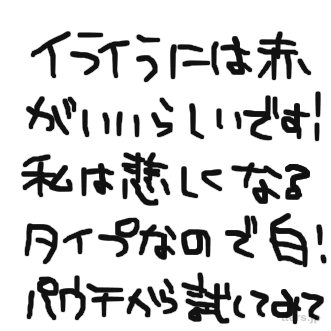 イライラには赤
がいいらしいです!
私は悲しくなる
タイプなので白!
パウチから試してみて